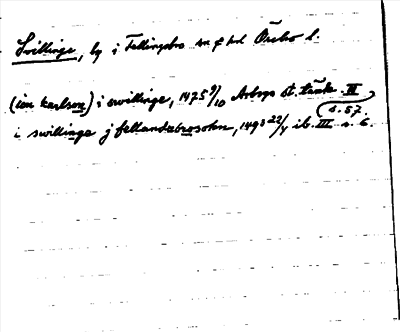 Svillinge, by i Fellingsbro sn o hd Örebro l.
(iön karlson) i swillinge, 1475 9/10 Arboga st. tänk. III
s. 57.
i swillinge j fellandzbrosokn, 1493 22/4 ib. III s. 6.